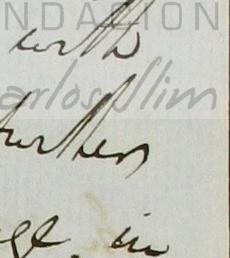 NDACIÓN
with
arlos Slim
urther
ge in